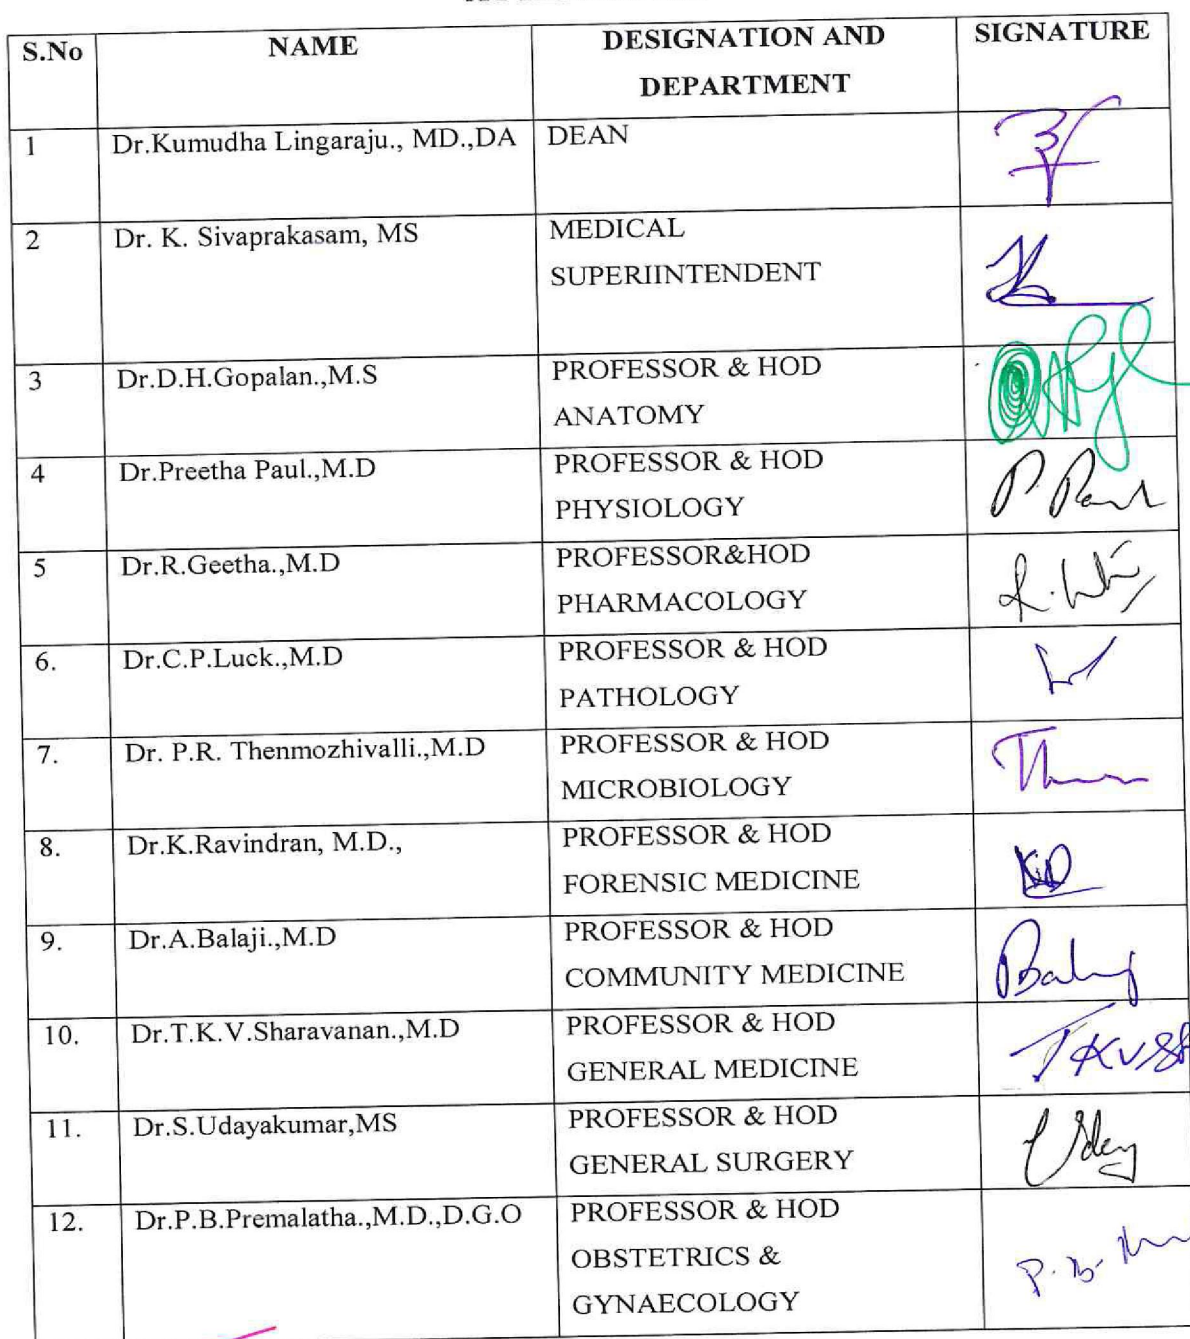 S.No NAME DESIGNATION AND DEPARTMENT SIGNATURE
1 Dr.Kumudha Lingaraju., MD.,DA DEAN
2 Dr. K. Sivaprakasam, MS MEDICAL
SUPERIINTENDENT
3 Dr.D.H.Gopalan.,M.S PROFESSOR & HOD
ANATOMY
4 Dr.Preetha Paul.,M.D PROFESSOR & HOD
PHYSIOLOGY
P. Paul
5 Dr.R.Geetha.,M.D PROFESSOR&HOD
PHARMACOLOGY
6. Dr.C.P.Luck.,M.D PROFESSOR & HOD
PATHOLOGY
7. Dr. P.R. Thenmozhivalli.,M.D PROFESSOR & HOD
MICROBIOLOGY
8. Dr.K.Ravindran, M.D., PROFESSOR & HOD
FORENSIC MEDICINE
9. Dr.A.Balaji.,M.D PROFESSOR & HOD
COMMUNITY MEDICINE
10. Dr.T.K.V.Sharavanan.,M.D PROFESSOR & HOD
GENERAL MEDICINE
11. Dr.S.Udayakumar,MS PROFESSOR & HOD
GENERAL SURGERY
Uday
12. Dr.P.B.Premalatha.,M.D.,D.G.O PROFESSOR & HOD
OBSTETRICS &
GYNAECOLOGY